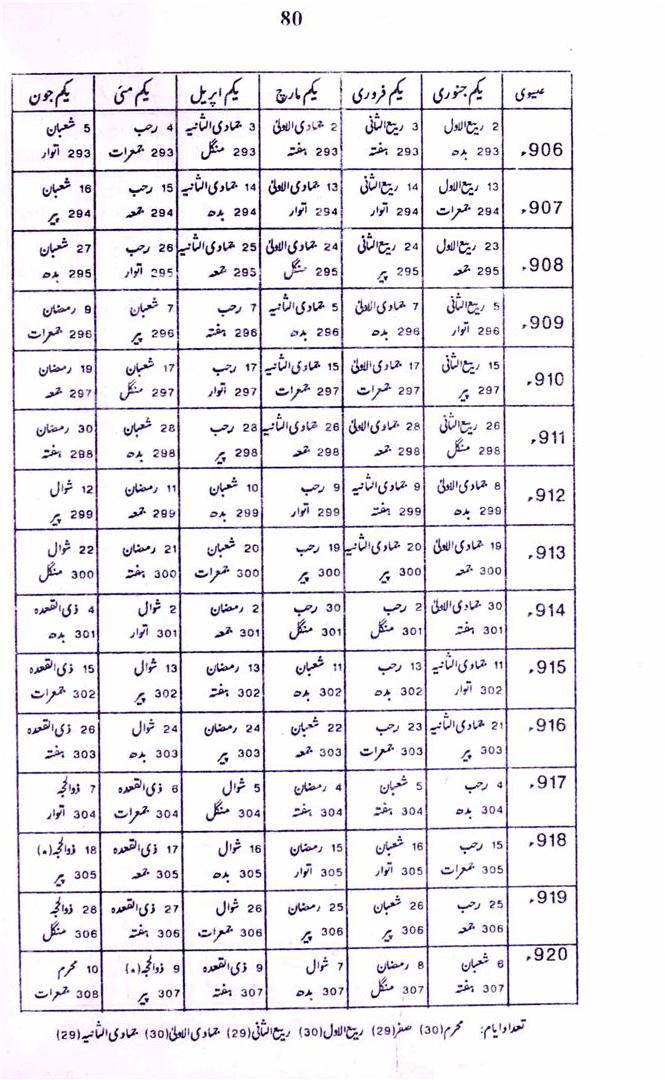 80
عیسوی یکم جنوری یکم فروری یکم مارچ یکم اپریل یکم مئی یکم جون
906ء 2 ربیع الاول 3 ربیع الثانی 2 جمادی الاولیٰ 3 جمادی الثانیہ 4 رجب 5 شعبان
293 بدھ 293 ہفتہ 293 ہفتہ 293 منگل 293 جمعرات 293 اتوار
907ء 13 ربیع الاول 14 ربیع الثانی 13 جمادی الاولیٰ 14 جمادی الثانیہ 15 رجب 16 شعبان
294 جمعرات 294 اتوار 294 اتوار 294 بدھ 294 جمعہ 294 پیر
908ء 23 ربیع الاول 24 ربیع الثانی 24 جمادی الاولیٰ 25 جمادی الثانیہ 26 رجب 27 شعبان
295 جمعہ 295 پیر 295 منگل 295 جمعہ 295 اتوار 295 بدھ
909ء 5 ربیع الثانی 7 جمادی الاولیٰ 5 جمادی الثانیہ 7 رجب 7 شعبان 9 رمضان
296 اتوار 296 بدھ 296 بدھ 296 ہفتہ 296 پیر 296 جمعرات
910ء 15 ربیع الثانی 17 جمادی الاولیٰ 15 جمادی الثانیہ 17 رجب 17 شعبان 19 رمضان
297 پیر 297 جمعرات 297 جمعرات 297 اتوار 297 منگل 297 جمعہ
911ء 26 ربیع الثانی 28 جمادی الاولیٰ 26 جمادی الثانیہ 28 رجب 28 شعبان 30 رمضان
298 منگل 298 جمعہ 298 جمعہ 298 پیر 298 بدھ 298 ہفتہ
912ء 8 جمادی الاولیٰ 9 جمادی الثانیہ 9 رجب 10 شعبان 11 رمضان 12 شوال
299 بدھ 299 ہفتہ 299 اتوار 299 بدھ 299 جمعہ 299 پیر
913ء 19 جمادی الاولیٰ 20 جمادی الثانیہ 19 رجب 20 شعبان 21 رمضان 22 شوال
300 جمعہ 300 پیر 300 پیر 300 جمعرات 300 ہفتہ 300 منگل
914ء 30 جمادی الاولیٰ 2 رجب 30 رجب 2 رمضان 2 شوال 4 ذی القعدہ
301 ہفتہ 301 منگل 301 منگل 301 جمعہ 301 اتوار 301 بدھ
915ء 11 جمادی الثانیہ 13 رجب 11 شعبان 13 رمضان 13 شوال 15 ذی القعدہ
302 اتوار 302 بدھ 302 بدھ 302 ہفتہ 302 پیر 302 جمعرات
916ء 21 جمادی الثانیہ 23 رجب 22 شعبان 24 رمضان 24 شوال 26 ذی القعدہ
303 پیر 303 جمعرات 303 جمعہ 303 پیر 303 بدھ 303 ہفتہ
917ء 4 رجب 5 شعبان 4 رمضان 5 شوال 6 ذی القعدہ 7 ذوالحجہ
304 بدھ 304 ہفتہ 304 ہفتہ 304 منگل 304 جمعرات 304 اتوار
918ء 15 رجب 16 شعبان 15 رمضان 16 شوال 17 ذی القعدہ 18 ذوالحجہ(*)
305 جمعرات 305 اتوار 305 اتوار 305 بدھ 305 جمعہ 305 پیر
919ء 25 رجب 26 شعبان 25 رمضان 26 شوال 27 ذی القعدہ 28 ذوالحجہ
306 جمعہ 306 پیر 306 پیر 306 جمعرات 306 ہفتہ 306 منگل
920ء 6 شعبان 8 رمضان 7 شوال 9 ذی القعدہ 9 ذوالحجہ(*) 10 محرم
307 ہفتہ 307 منگل 307 بدھ 307 ہفتہ 307 پیر 308 جمعرات
تعداد ایام: محرم(30) صفر(29) ربیع الاول(30) ربیع الثانی(29) جمادی الاولیٰ(30) جمادی الثانیہ(29)